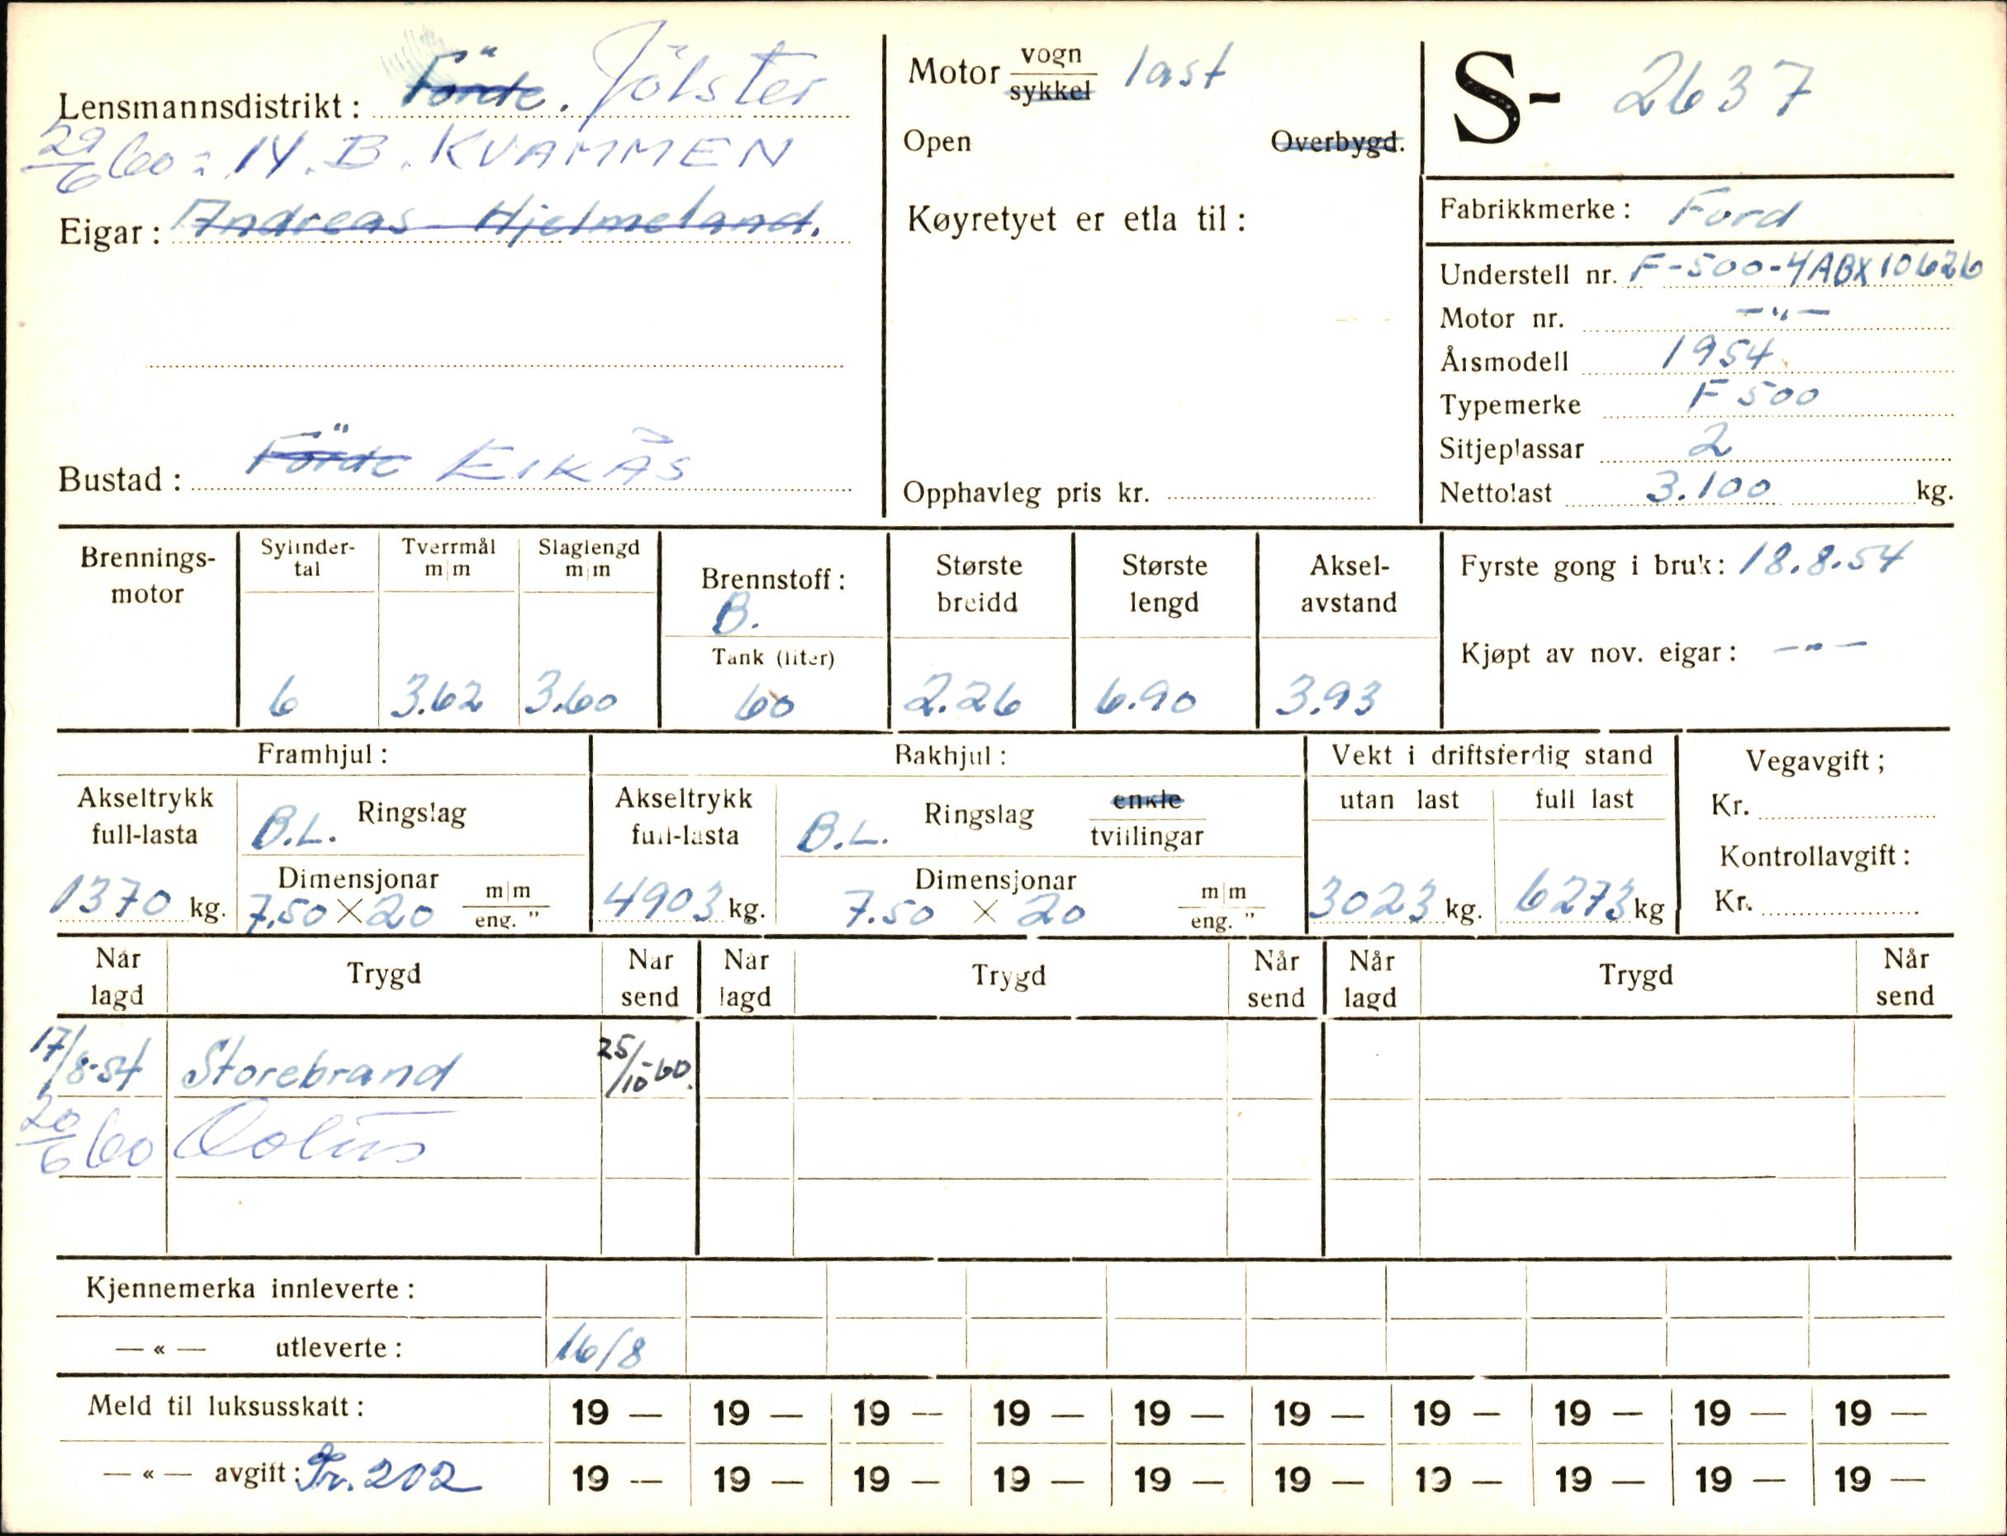 Lensmannsdistrikt: Förde. Jölster
29/6 60: 14. B. KVAMMEN
Eigar: Andreas Hjelmeland.
Bustad: Förde EIKÅS
Motor vogn/sykkel last
Open Overbygd.
Køyretyet er etla til:
Opphavleg pris kr.
S- 2637
Fabrikkmerke: Ford
Understell nr. F-500-4ABX10626
Motor nr. —"—
Årsmodell 1954
Typemerke F 500
Sitjeplassar 2
Nettolast 3.100 kg.
Brennings-motor
Sylinder-tal 6
Tverrmål m|m 3.62
Slaglengd m|m 3.60
Brennstoff: B.
Tank (liter) 60
Største breidd 2.26
Største lengd 6.90
Aksel-avstand 3.93
Fyrste gong i bruk: 18.8.54
Kjøpt av nov. eigar: —"—
Framhjul:
Akseltrykk full-lasta 1370 kg.
B.L. Ringslag
Dimensjonar 7.50 X 20 m|m eng. "
Bakhjul:
Akseltrykk full-lasta 4903 kg.
B.L. Ringslag enkle tvillingar
Dimensjonar 7.50 X 20 m|m eng. "
Vekt i driftsferdig stand
utan last 3023 kg.
full last 6273 kg
Vegavgift;
Kr.
Kontrollavgift:
Kr.
Når lagd Trygd Når send Når lagd Trygd Når send Når lagd Trygd Når send
17/8-54 Storebrand 25/10-60.
20/6 60
Kjennemerka innleverte:
— « — utleverte: 16/8
Meld til luksusskatt: 19 — 19 — 19 — 19 — 19 — 19 — 19 — 19 — 19 — 19 —
— « — avgift: Pr. 202 19 — 19 — 19 — 19 — 19 — 19 — 19 — 19 — 19 — 19 —